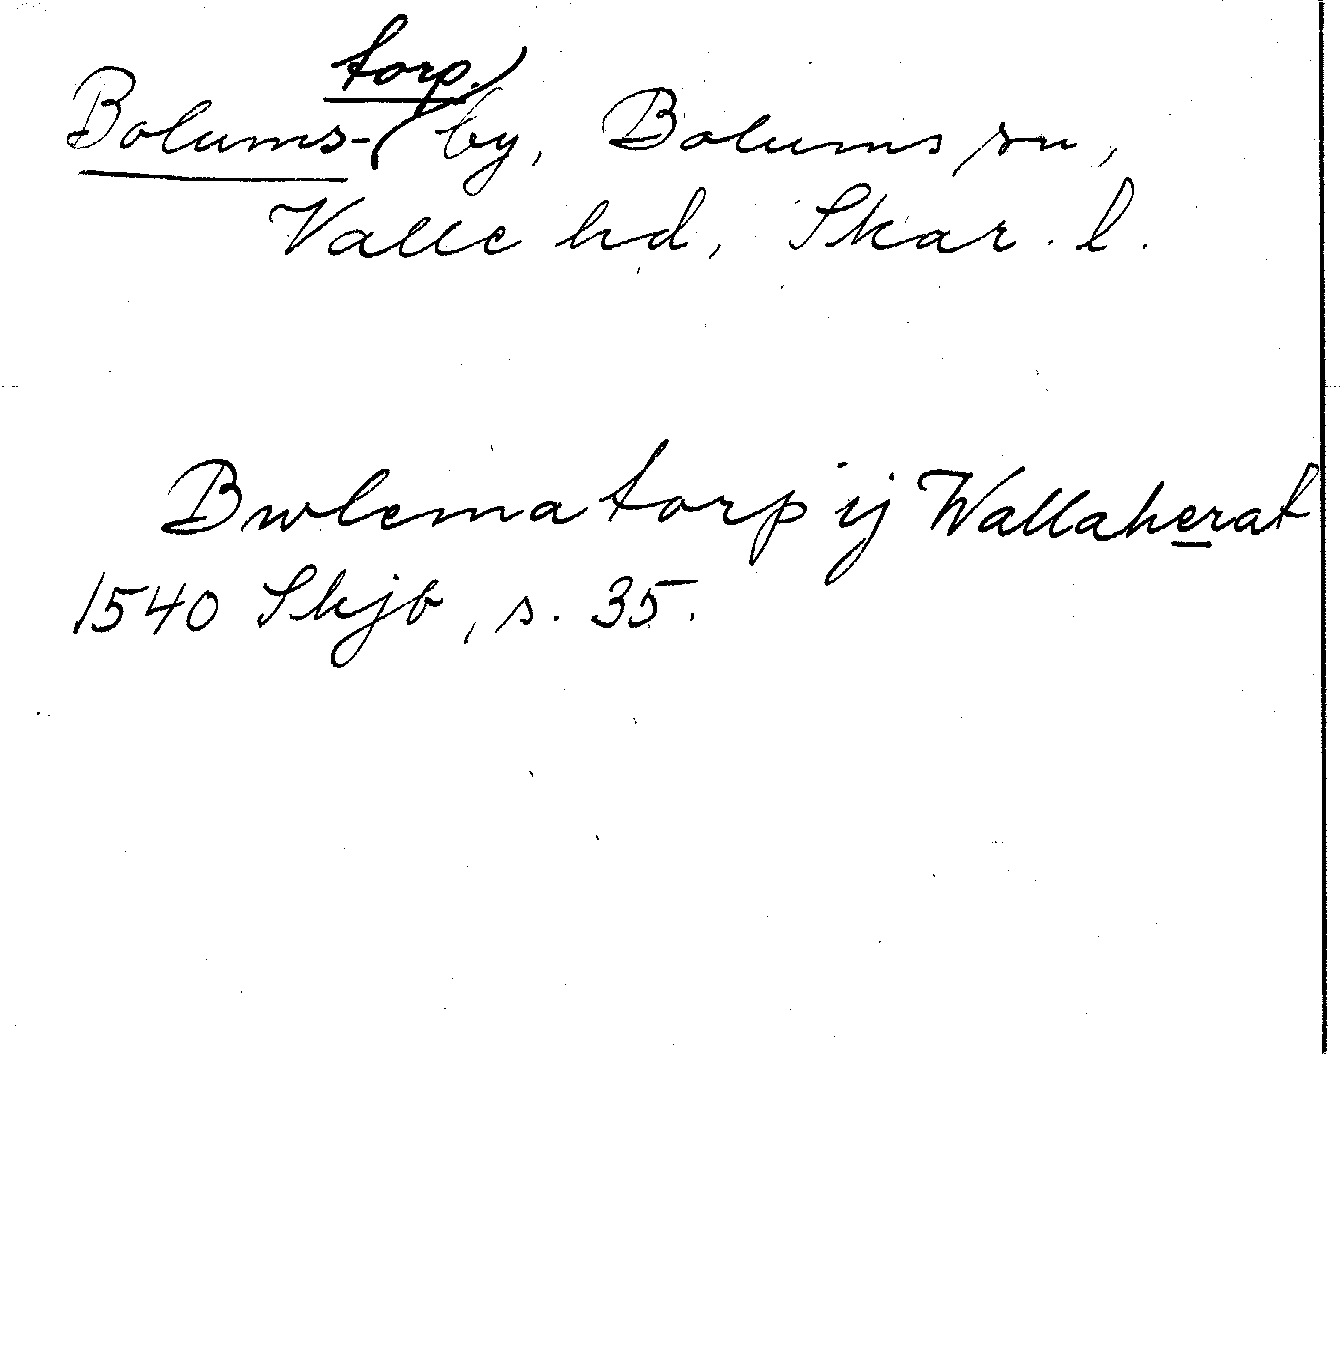 torp.)
Bolums-(by, Bolums sn,
Valle hd, Skar. l.
Bwlematorp ij Wallaherat
1540 Skjb, s. 35.